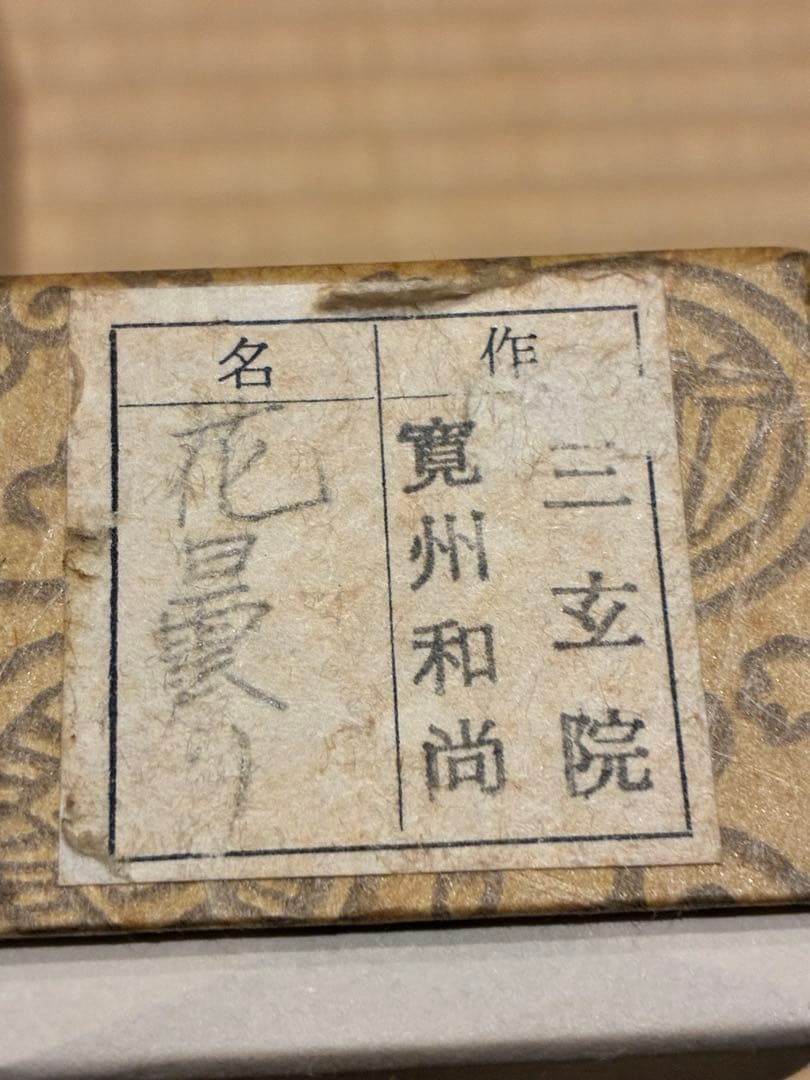 作
三玄院
寛州和尚
名
花曇り